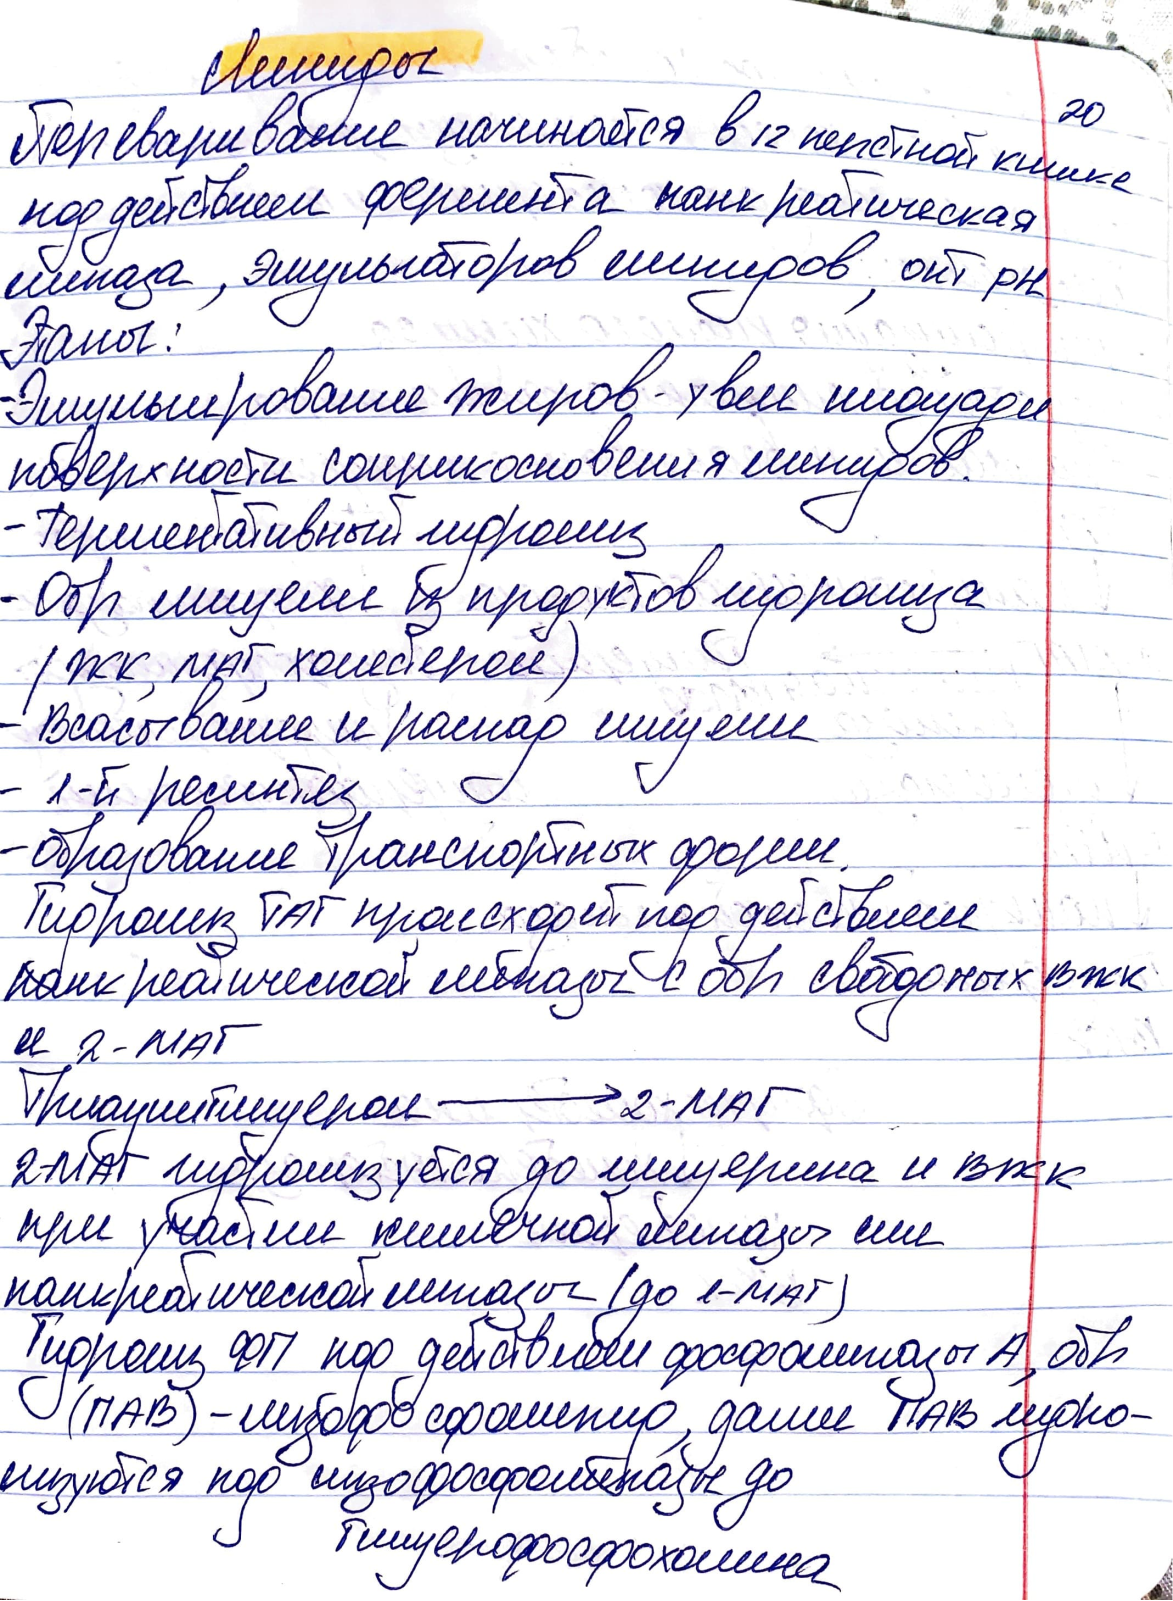 Липиды
20
Переваривание начинается в 12 перстной кишке
под действием фермента панкреатическая
липаза, эмульгаторов липидов, опт pH
Этапы:
-Эмульгирование жиров - увел площади
поверхности соприкосновения липидов.
- Ферментативный гидролиз
- Обр мицелл из продуктов гидролиза
(ЖК, МАГ, холестерол)
- Всасывание и распад мицелл
- 1-й ресинтез
- образование транспортных форм.
Гидролиз ТАГ происходит под действием
панкреатической липазы с обр свободных ВЖК
и 2-МАГ
Триацилглицерол ⟶ 2-МАГ
2-МАГ гидролизуется до глицерина и ВЖК
при участии кишечной липазы или
панкреатической липазы (до 1-МАГ)
Гидролиз ФЛ под действием фосфолипазы А, обр
(ПАВ) - лизофосфолипид, далее ПАВ гидро-
лизуются под лизофосфолипазы до
глицерофосфохолина